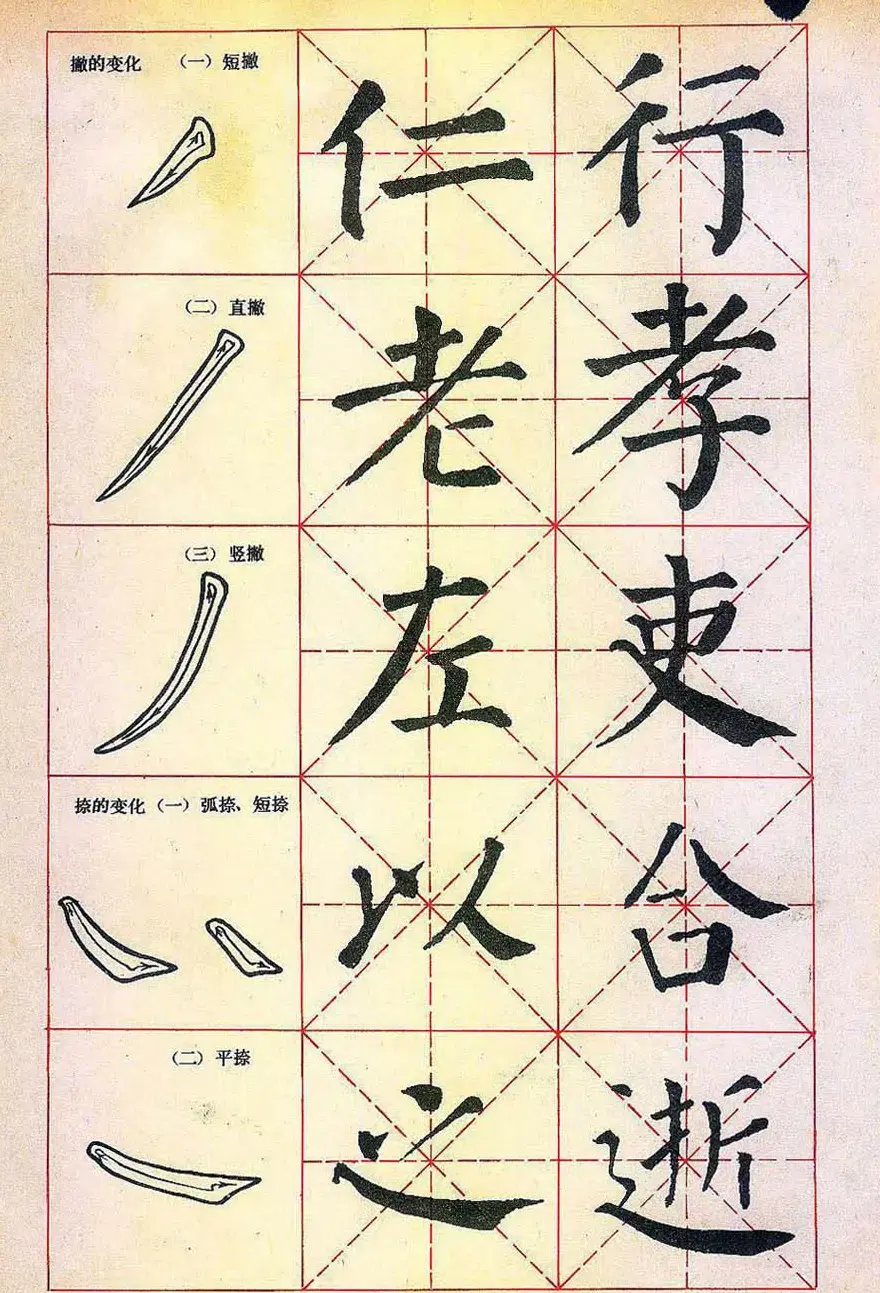 撇的变化 （一）短撇
仁 行
（二）直撇
老 孝
（三）竖撇
左 吏
捺的变化（一）弧捺、短捺
以 合
（二）平捺
之 逝